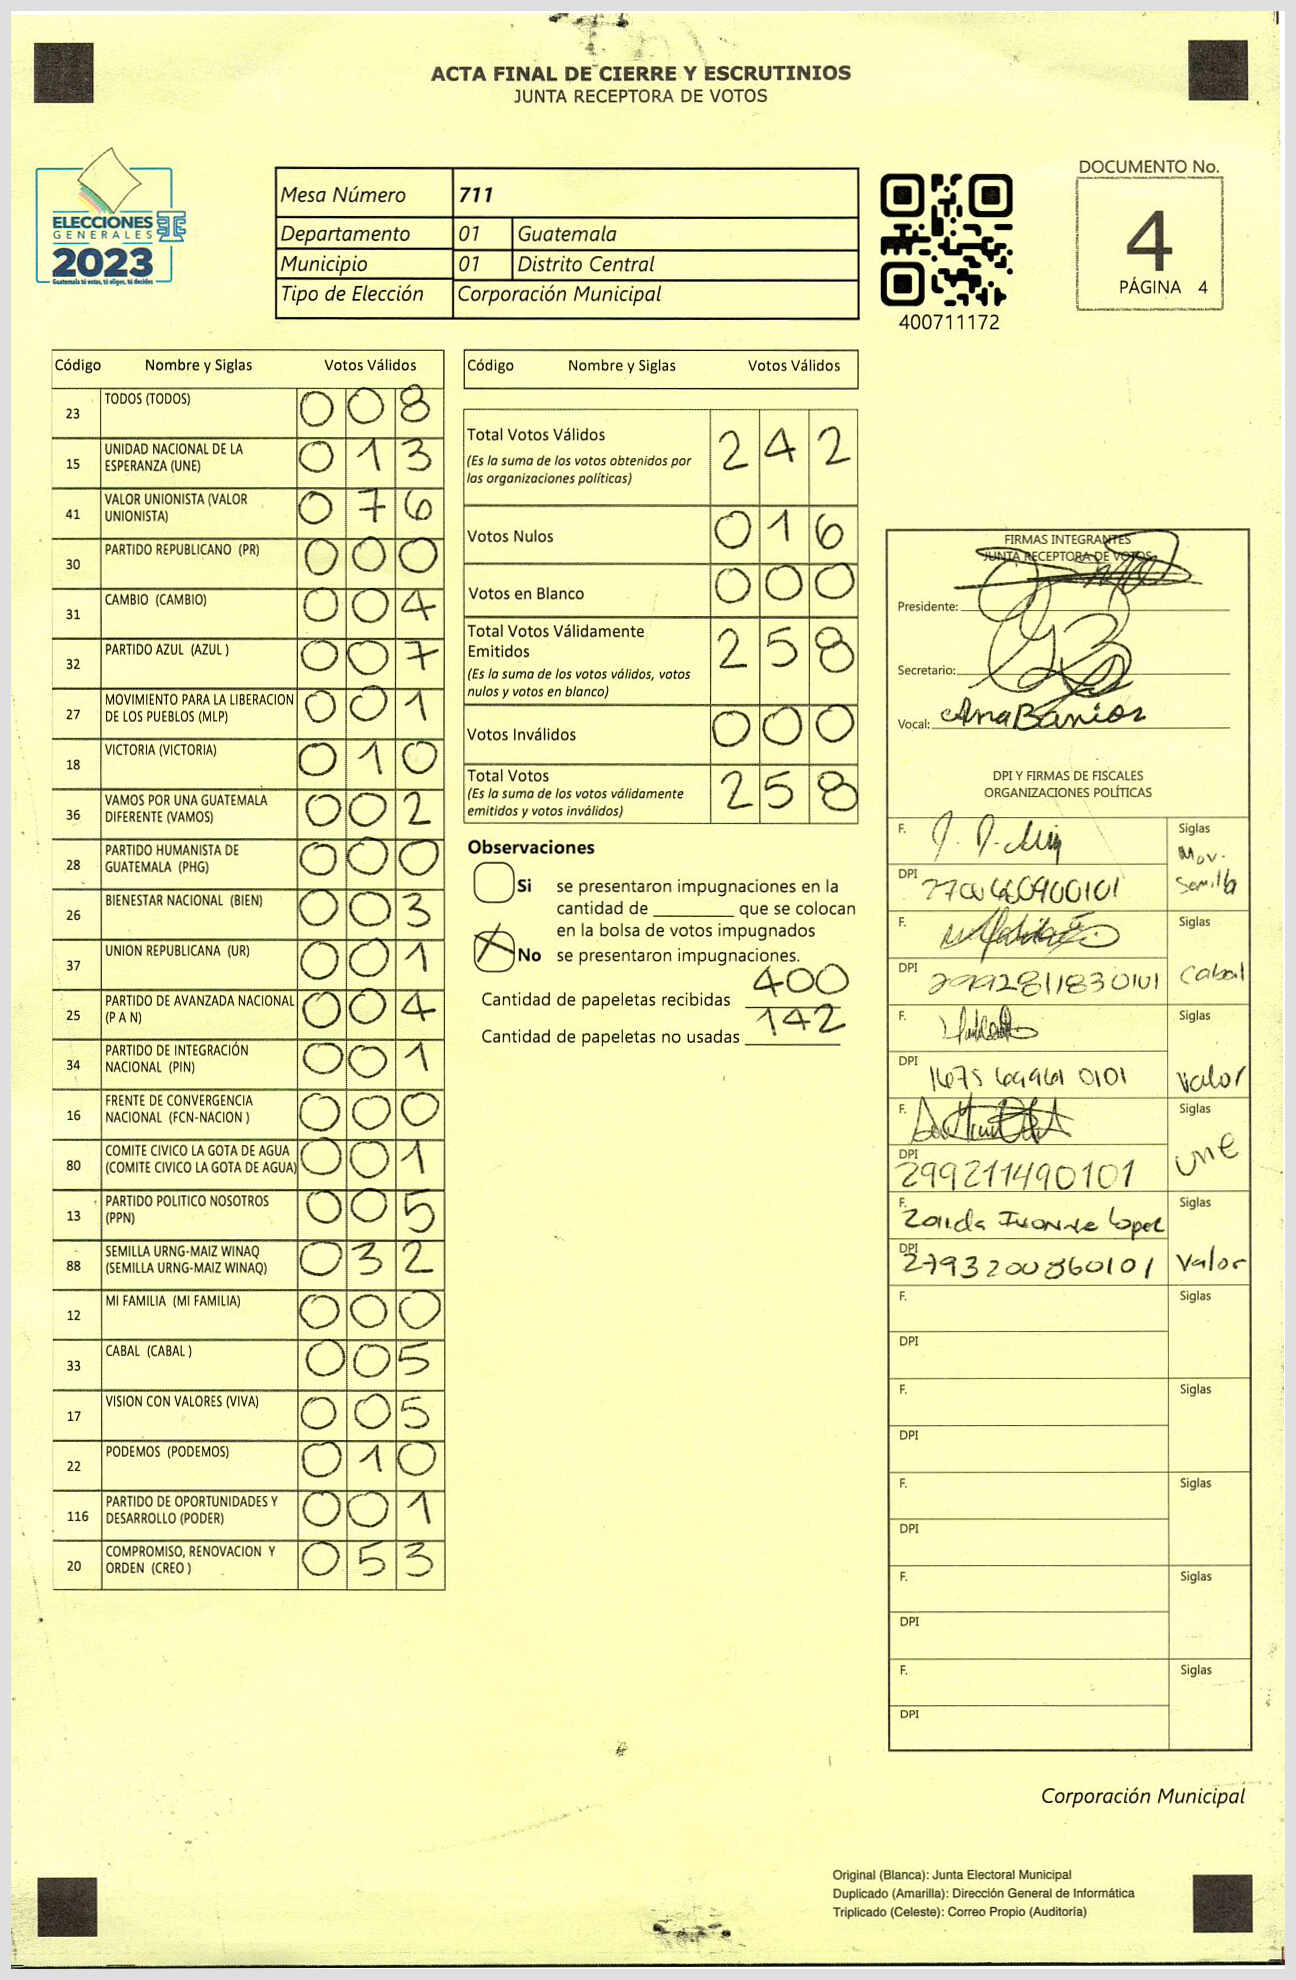 ACTA FINAL DE CIERRE Y ESCRUTINIOS
JUNTA RECEPTORA DE VOTOS
ELECCIONES
GENERALES
2023
Guatemala tú votas, tú eliges, tú decides
Mesa Número 711
Departamento 01 Guatemala
Municipio 01 Distrito Central
Tipo de Elección Corporación Municipal
400711172
DOCUMENTO No.
4
PÁGINA 4
Código Nombre y Siglas Votos Válidos
23 TODOS (TODOS) 008
15 UNIDAD NACIONAL DE LA ESPERANZA (UNE) 013
41 VALOR UNIONISTA (VALOR UNIONISTA) 076
30 PARTIDO REPUBLICANO (PR) 000
31 CAMBIO (CAMBIO) 004
32 PARTIDO AZUL (AZUL ) 007
27 MOVIMIENTO PARA LA LIBERACION DE LOS PUEBLOS (MLP) 001
18 VICTORIA (VICTORIA) 010
36 VAMOS POR UNA GUATEMALA DIFERENTE (VAMOS) 002
28 PARTIDO HUMANISTA DE GUATEMALA (PHG) 000
26 BIENESTAR NACIONAL (BIEN) 003
37 UNION REPUBLICANA (UR) 001
25 PARTIDO DE AVANZADA NACIONAL (P A N) 004
34 PARTIDO DE INTEGRACIÓN NACIONAL (PIN) 001
16 FRENTE DE CONVERGENCIA NACIONAL (FCN-NACION ) 000
80 COMITE CIVICO LA GOTA DE AGUA (COMITE CIVICO LA GOTA DE AGUA) 001
13 PARTIDO POLITICO NOSOTROS (PPN) 005
88 SEMILLA URNG-MAIZ WINAQ (SEMILLA URNG-MAIZ WINAQ) 032
12 MI FAMILIA (MI FAMILIA) 000
33 CABAL (CABAL ) 005
17 VISION CON VALORES (VIVA) 005
22 PODEMOS (PODEMOS) 010
116 PARTIDO DE OPORTUNIDADES Y DESARROLLO (PODER) 001
20 COMPROMISO, RENOVACION Y ORDEN (CREO ) 053
Código Nombre y Siglas Votos Válidos
Total Votos Válidos 242
(Es la suma de los votos obtenidos por
las organizaciones políticas)
Votos Nulos 016
Votos en Blanco 000
Total Votos Válidamente
Emitidos 258
(Es la suma de los votos válidos, votos
nulos y votos en blanco)
Votos Inválidos 000
Total Votos 258
(Es la suma de los votos válidamente
emitidos y votos inválidos)
Observaciones
Si se presentaron impugnaciones en la
cantidad de ________ que se colocan
en la bolsa de votos impugnados
X No se presentaron impugnaciones.
Cantidad de papeletas recibidas 400
Cantidad de papeletas no usadas 142
FIRMAS INTEGRANTES
JUNTA RECEPTORA DE VOTOS
Presidente:
Secretario:
Vocal: Ana Barrios
DPI Y FIRMAS DE FISCALES
ORGANIZACIONES POLÍTICAS
F. Siglas
Mov.
Semilla
DPI
F. Siglas
DPI 2992811830101 Cabal
F. Siglas
DPI 1675 69961 0101 Valor
F. Siglas
une
DPI 299211490101
F. Ivonne Lopez Siglas
DPI 2793200860101 Valor
F. Siglas
DPI
F. Siglas
DPI
F. Siglas
DPI
F. Siglas
DPI
F. Siglas
DPI
Corporación Municipal
Original (Blanca): Junta Electoral Municipal
Duplicado (Amarilla): Dirección General de Informática
Triplicado (Celeste): Correo Propio (Auditoría)